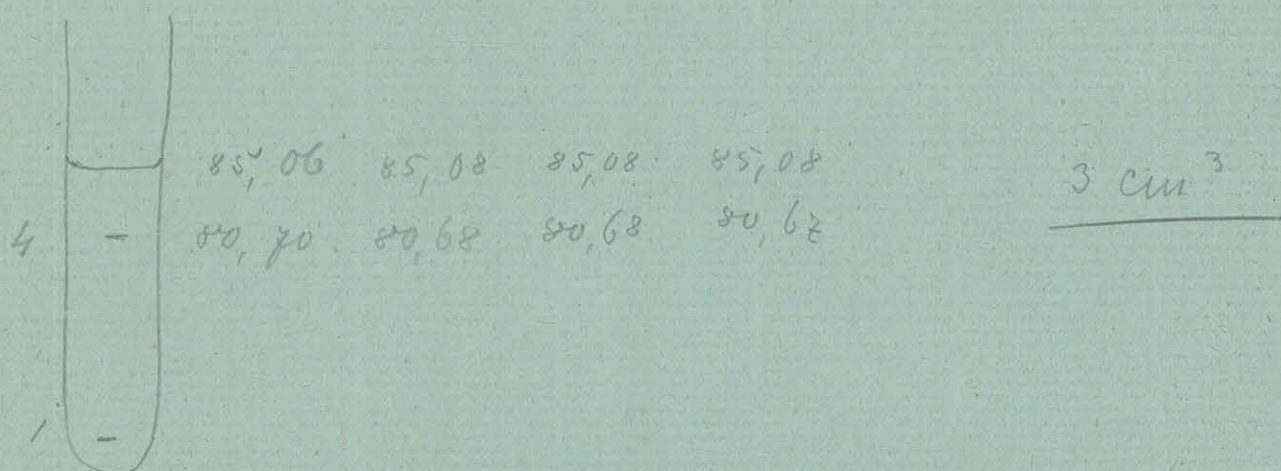 85,06 85,08 85,08 85,08 3 cm³
4 - 80,70 80,68 80,68 80,67
1 -